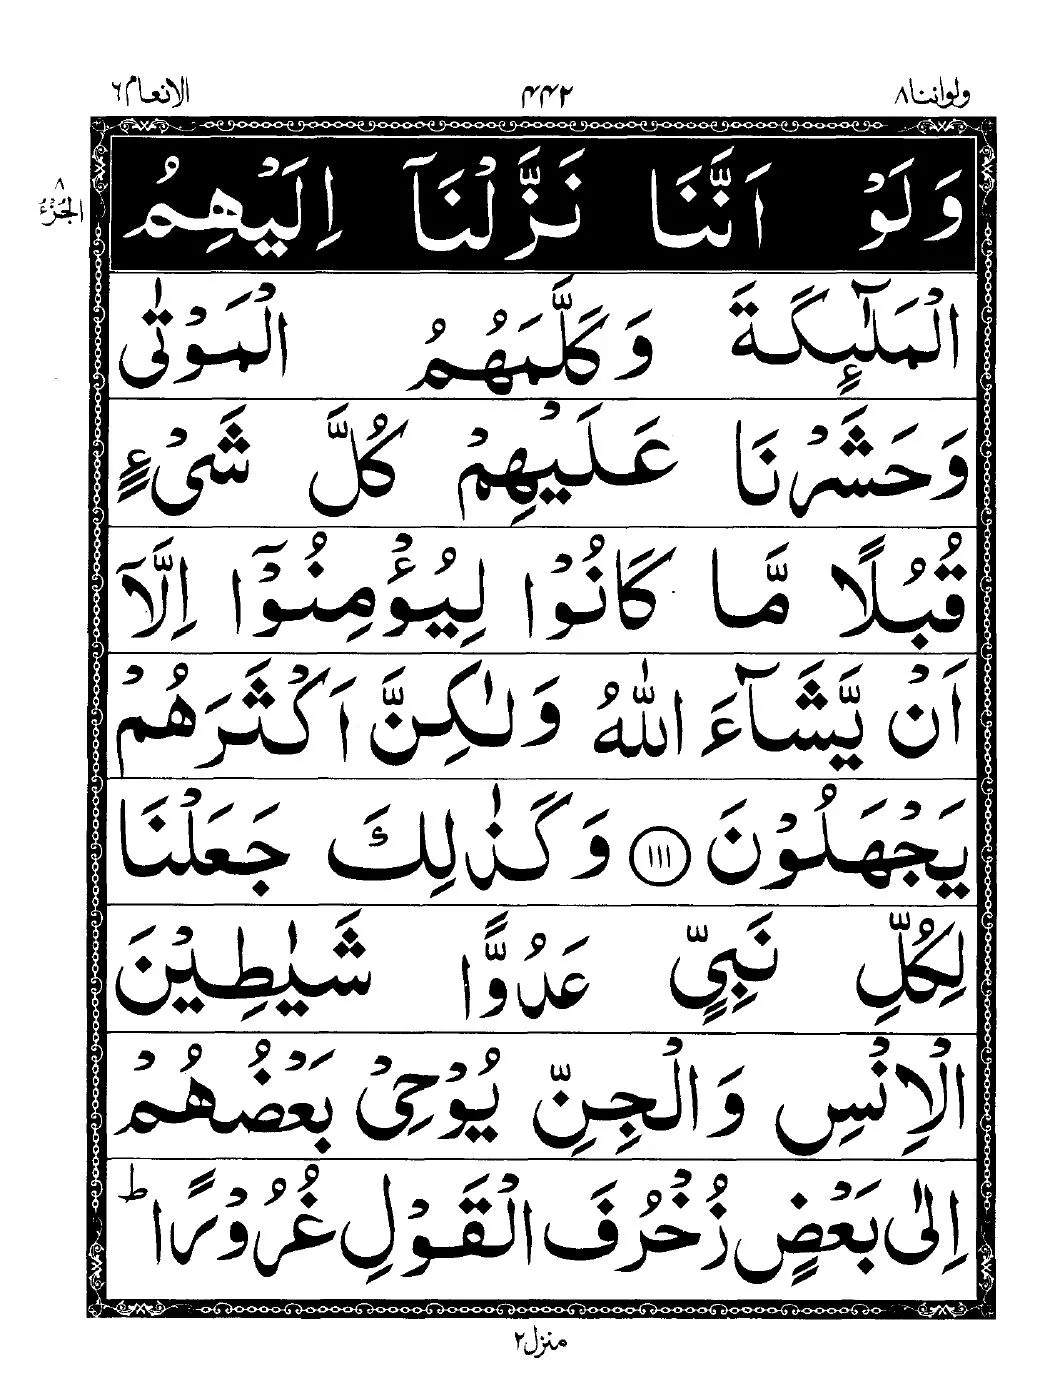 ولواننا۸ ۴۴۲ الانعام۶
وَلَوْ اَنَّنَا نَزَّلْنَآ اِلَيْهِمُ
الْجُزْءُ ۸
الْمَلٰٓىِٕكَةَ وَكَلَّمَهُمُ الْمَوْتٰى
وَحَشَرْنَا عَلَيْهِمْ كُلَّ شَىْءٍ
قُبُلًا مَّا كَانُوْا لِيُؤْمِنُوْٓا اِلَّآ
اَنْ يَّشَآءَ اللّٰهُ وَلٰكِنَّ اَكْثَرَهُمْ
يَجْهَلُوْنَ ۝۱۱۱ وَكَذٰلِكَ جَعَلْنَا
لِكُلِّ نَبِىٍّ عَدُوًّا شَيٰطِيْنَ
الْاِنْسِ وَالْجِنِّ يُوْحِىْ بَعْضُهُمْ
اِلٰى بَعْضٍ زُخْرُفَ الْقَوْلِ غُرُوْرًا ؕ
منزل۲